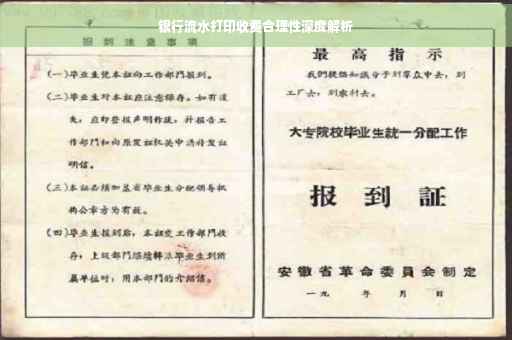 银行流水打印收费合理性深度解析
报到注意事项
(一)毕业生凭本证向工作部门报到。
(二)毕业生对本证应注意保存。如有遗
失，应即登报声明作废，并报告工
作部门和向原发证机关申请补发证
明信。
(三)本证必须加盖省毕业生分配领导机
构公章方为有效。
(四)毕业生报到后，本证交工作部门收
存；上级部门继续转派毕业生到所
属单位时，用本部门的介绍信。
最高指示
我们提倡知识分子到羣众中去，到
工厂去，到农村去。
大专院校毕业生统一分配工作
报到证
安徽省革命委员会制定
一九 年 月 日